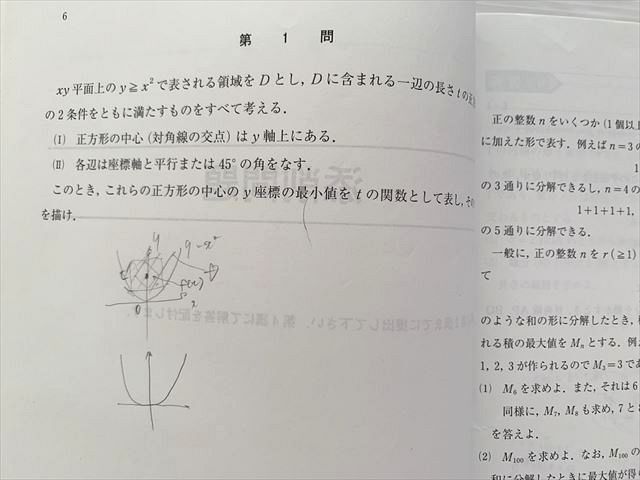 6
第 1 問
xy 平面上の y ≧ x² で表される領域を D とし，D に含まれる一辺の長さ t の正
の2条件をともに満たすものをすべて考える．
(I) 正方形の中心 (対角線の交点) は y 軸上にある．
(II) 各辺は座標軸と平行または 45° の角をなす．
このとき，これらの正方形の中心の y 座標の最小値を t の関数として表し，その
を描け．
y
y=x²
x
0
正の整数 n をいくつか (1個以上
に加えた形で表す．例えば n=3 の
の3通りに分解できるし，n=4 の
1+1+1+1,
の5通りに分解できる．
一般に，正の整数 n を r(≧1)
て
のような和の形に分解したとき，
れる積の最大値を Mₙ とする．例え
1, 2, 3 が作られるので M₃=3 であ
(1) M₆ を求めよ．また，それは6
同様に，M₇, M₈ も求め，7と8
を答えよ．
(2) M₁₀₀ を求めよ．なお，M₁₀₀ の
和に分解したときに最大値が得